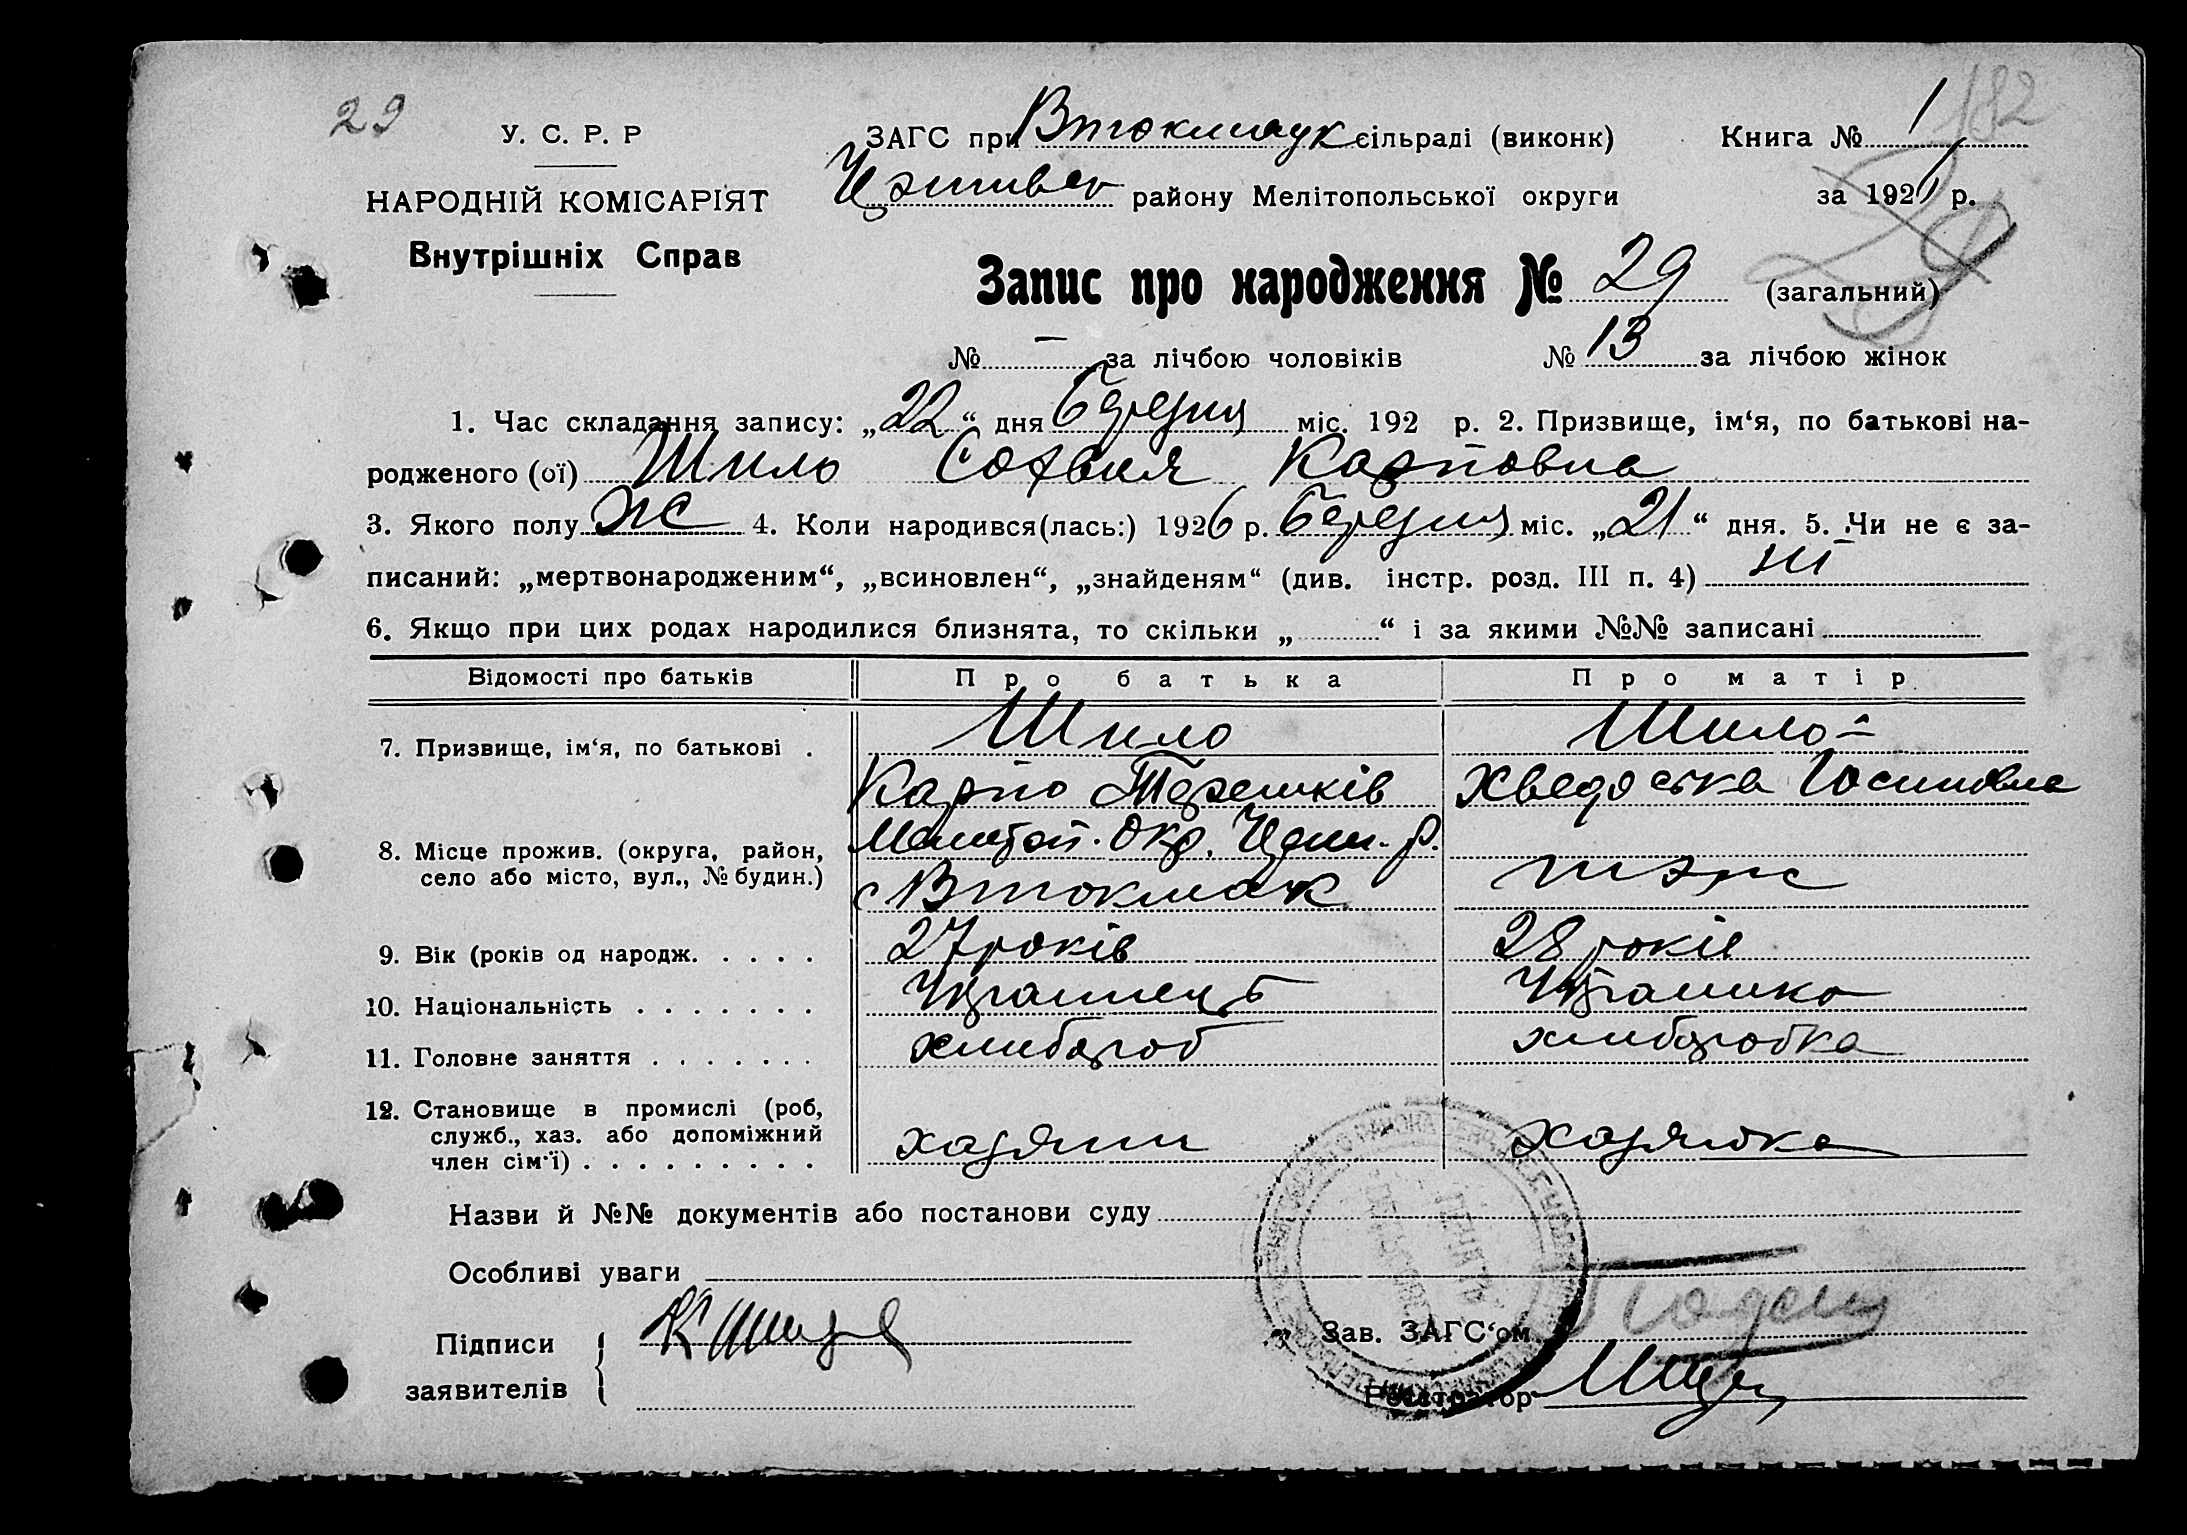 29
182
У. С. Р. Р
НАРОДНІЙ КОМІСАРІЯТ
Внутрішніх Справ
ЗАГС при Втокмаук сільраді (виконк) Книга № 1
району Мелітопольської округи за 192 р.
Запис про народження № 29 (загальний)
№ — за лічбою чоловіків № 13 за лічбою жінок
1. Час складання запису: „22“ дня березня міс. 192 р. 2. Призвище, ім‘я, по батькові на-
родженого (ої) Шило Софвия Карповна
3. Якого полу ж 4. Коли народився(лась:) 1926 р. березня міс. „21“ дня. 5. Чи не є за-
писаний: „мертвонародженим“, „всиновлен“, „знайденям“ (див. інстр. розд. III п. 4) ні
6. Якщо при цих родах народилися близнята, то скільки „ “ і за якими №№ записані
Відомості про батьків Про батька Про матір
7. Призвище, ім‘я, по батькові . Шило Шило
Карпо Терешків Хведоська
8. Місце прожив. (округа, район, село або місто, вул., № будин.) Мелітоп. Окр. р.
с Втокмак
9. Вік (років од народж. . . . . 27 років 28 років
10. Національність . . . . . . . Українець Українка
11. Головне заняття . . . . . . . хлибороб хлиборобка
12. Становище в промислі (роб, служб., хаз. або допоміжний член сім‘ї) . . . . . . . . . хазяин хазяйка
Назви й №№ документів або постанови суду
Особливі уваги
Підписи заявителів
Зав. ЗАГС‘ом
Реєстратор